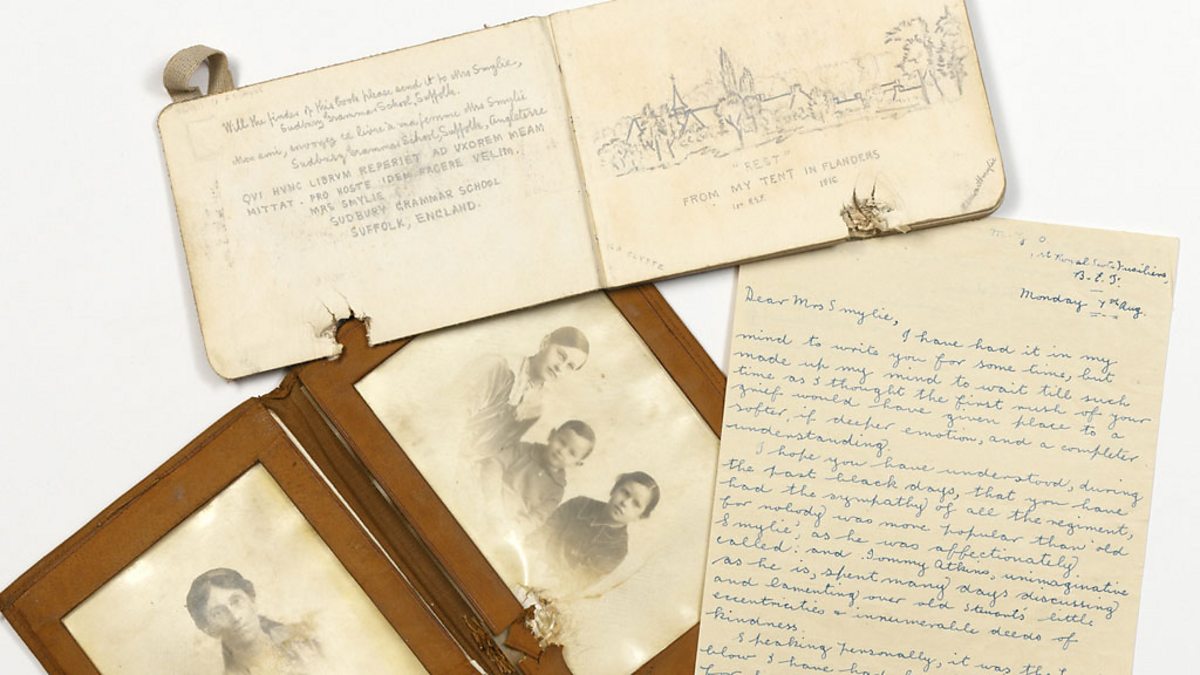 Will the finder of this book please send it to Mrs Smylie,
Sudbury Grammar School, Suffolk.
Mon ami, envoyez ce livre à ma femme Mrs Smylie
Sudbury Grammar School, Suffolk, Angleterre
QVI HVNC LIBRVM REPERIET AD VXOREM MEAM
MITTAT · PRO HOSTE IDEM FACERE VELIM.
MRS SMYLIE
SUDBURY GRAMMAR SCHOOL
SUFFOLK, ENGLAND.
"REST"
FROM MY TENT IN FLANDERS
1916
Dear Mrs Smylie,
B.E.F.
Monday 7th Aug.
I have had it in my
mind to write you for some time, but
made up my mind to wait till such
time as I thought the first rush of your
grief would have given place to a
softer, if deeper emotion, and a completer
understanding.
I hope you have understood, during
the past black days, that you have
had the sympathy of all the regiment,
for nobody was more popular than 'old
Smylie', as he was affectionately
called: and Tommy Atkins, unimaginative
as he is, spent many days discussing
and lamenting over old Stewart's little
eccentricities & innumerable deeds of
kindness.
Speaking personally, it was the
blow I have had